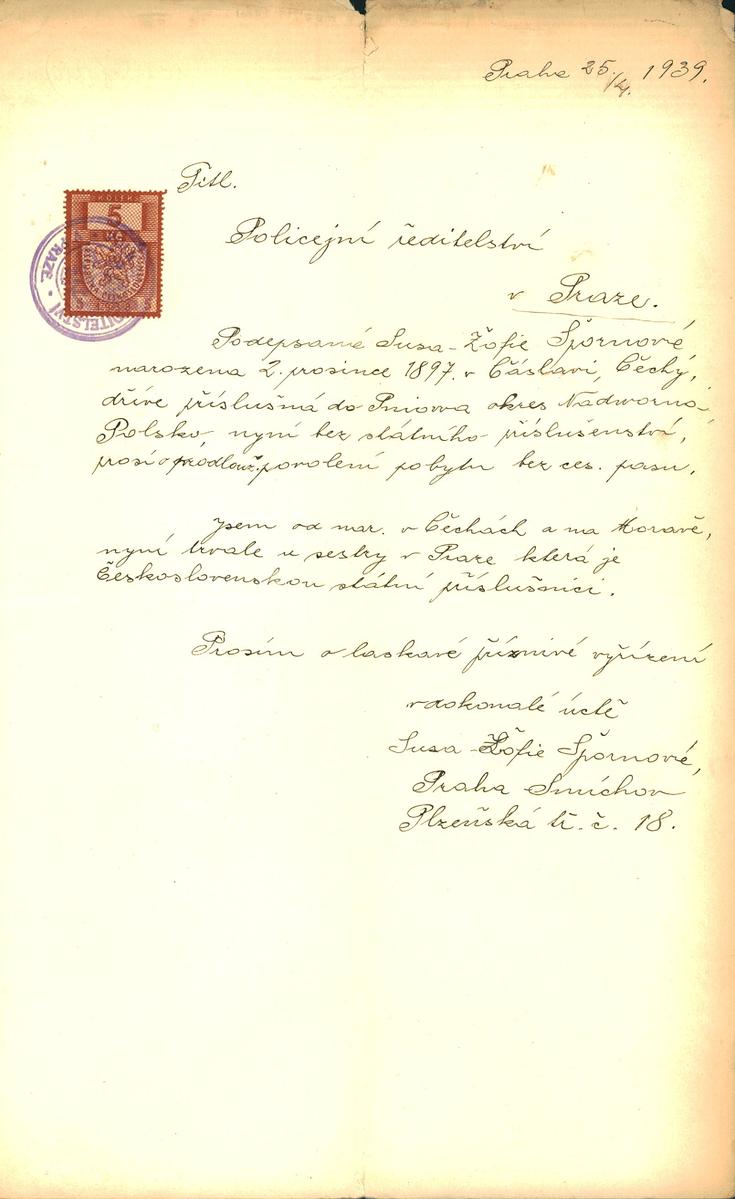 Praha 25./4. 1939.
Titl.
KOLEK
5
KČ
PRAZE •
DITELSTVÍ
Policejní ředitelství
v Praze.
Podepsané Susa-Žofie Špornové,
narozena 2. prosince 1897. v Čáslavi, Čechy,
dříve příslušná do Pniowa okres Nadworna
Polsko, nyní bez státního příslušenství,
prosí o prodlouž. povolení pobytu bez ces. pasu.
Jsem od nar. v Čechách a na Moravě,
nyní trvale u sestry v Praze která je
Československou státní příslušnicí.
Prosím o laskavé příznivé vyřízení
v dokonalé úctě
Susa-Žofie Špornové,
Praha Smíchov
Plzeňská tř. č. 18.